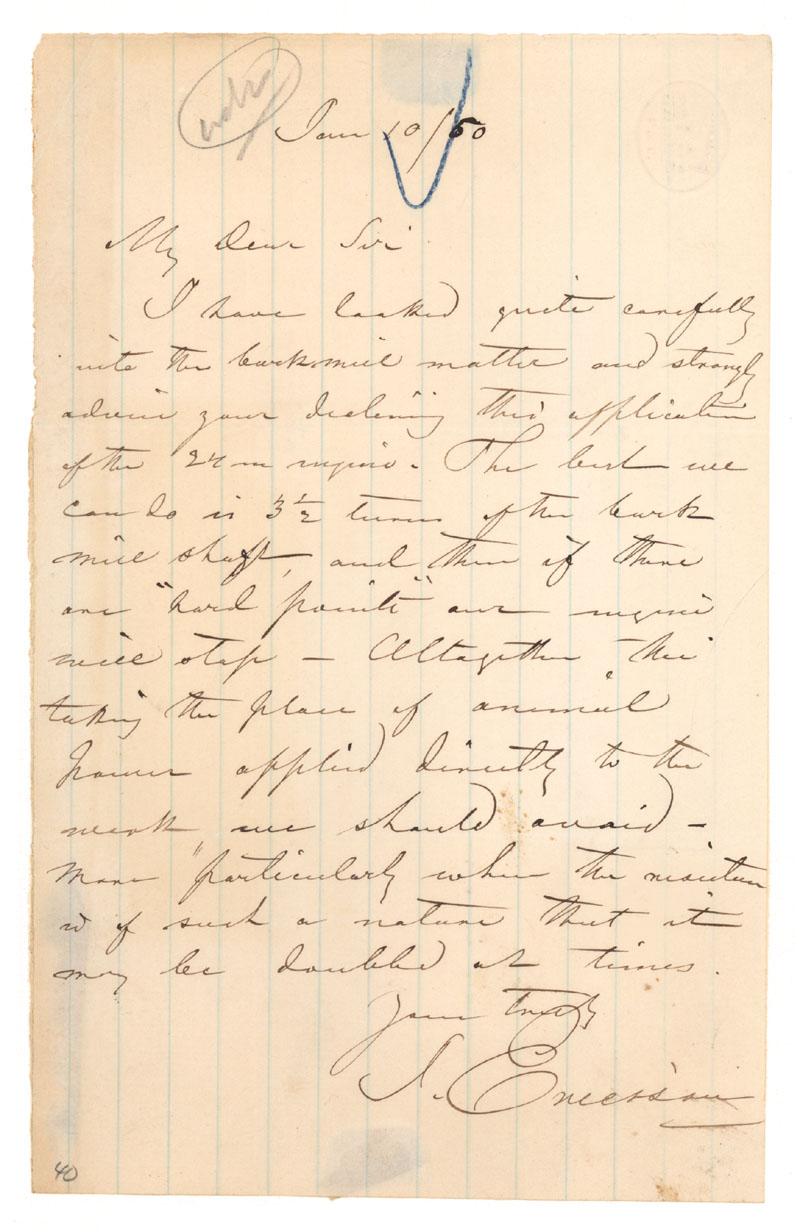 Jan 10/60
My Dear Sir
I have looked quite carefully
into the bark mill matter and strongly
advise your declining this application
of the 24 in engine. The best we
can do is 3½ turns of the bark
mill shaft, and then if there
are "hard points" our engine
will stop — Altogether this
taking the place of animal
power applied directly to the
work we should avoid —
more particularly when the resistance
is of such a nature that it
may be doubled at times.
Yours truly
J. Ericsson
40